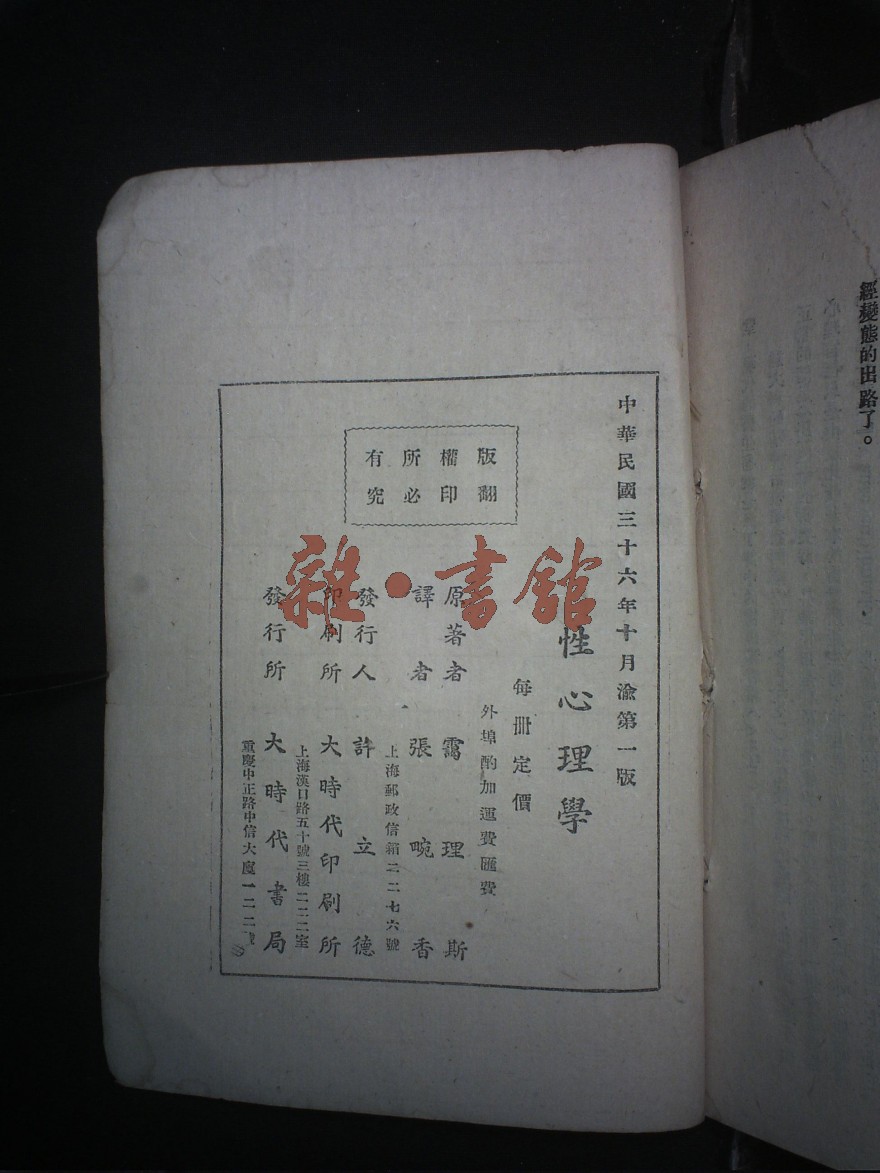 經變態的出路了。
中華民國三十六年十月渝第一版
性心理學
每冊定價
外埠酌加運費匯費
版權所有
翻印必究
原著者 靄理斯
譯者 張畹香
上海郵政信箱二二七六號
發行人 許立德
印刷所 大時代印刷所
上海漢口路五十號三樓二二二室
發行所 大時代書局
重慶中正路中信大廈一二二號
雜·書館